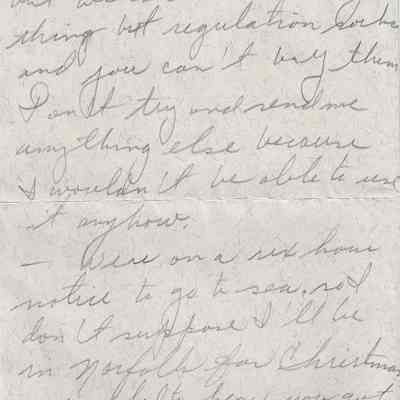 thing but regulation socks
and you can't buy them
Don't try and send me
anything else because
I wouldn't be able to use
it anyhow.
— We're on a six hour
notice to go to sea, so I
don't suppose I'll be
in Norfolk for Christmas
you got